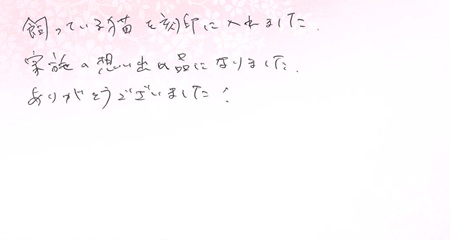 飼っている猫を刻印に入れました。
家族の想い出の品になりました。
ありがとうございました！